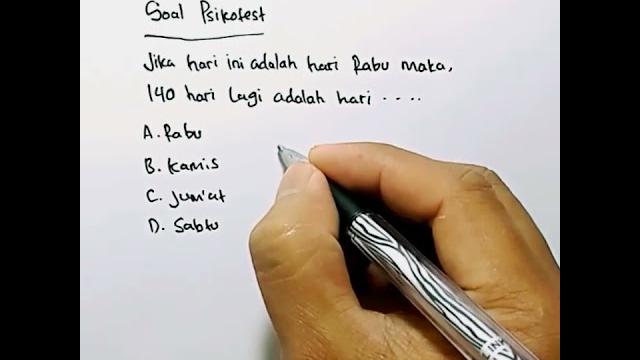 Soal Psikotest
Jika hari ini adalah hari Rabu maka,
140 hari lagi adalah hari ....
A. Rabu
B. Kamis
C. Jum'at
D. Sabtu